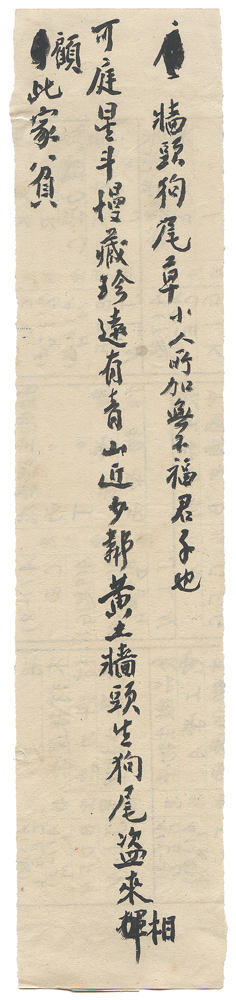 牆頭狗尾草小人所加無不福君子也
可庭星斗慢藏珍遠有青山近少鄰黃土牆頭生狗尾盜來相
顧此家貧